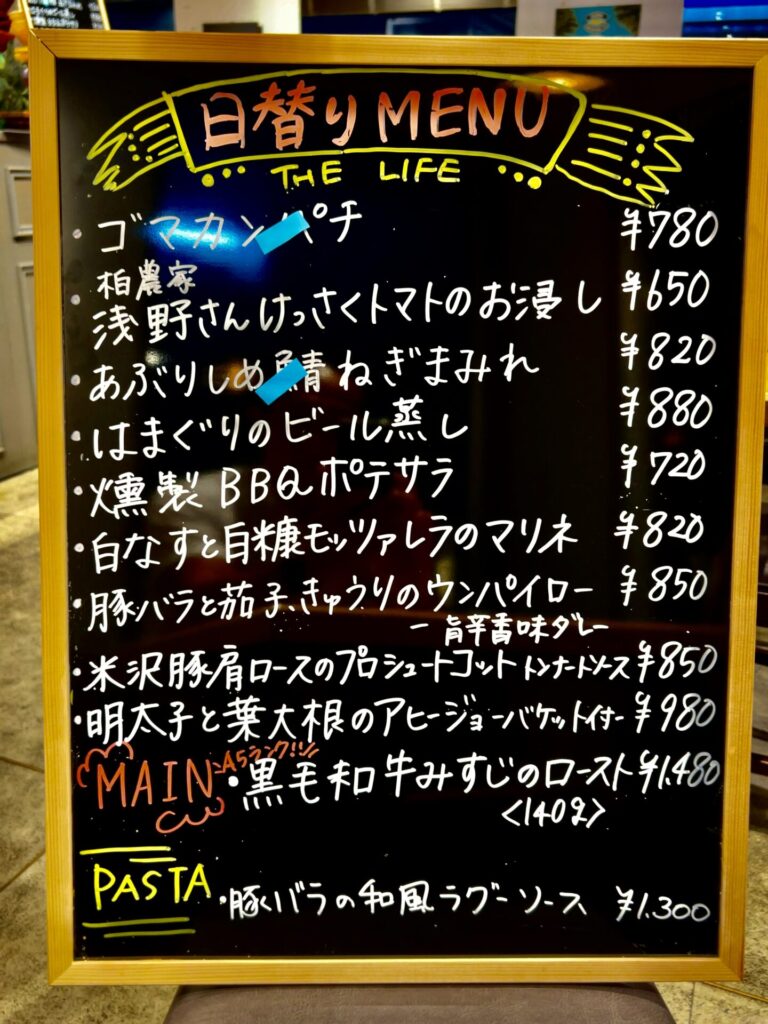 日替りMENU
THE LIFE
・ゴマカンパチ ¥780
柏農家
・浅野さんけっさくトマトのお浸し ¥650
・あぶりしめ鯖ねぎまみれ ¥820
・はまぐりのビール蒸し ¥880
・燻製BBQポテサラ ¥720
・白なすと自糠モッツァレラのマリネ ¥820
・豚バラと茄子、きゅうりのウンパイロー ¥850
ー旨辛香味ダレー
・米沢豚肩ロースのプロシュートコット トンナートソース ¥850
・明太子と葉大根のアヒージョーバケット付ー ¥980
A5ランク!!
MAIN ・黒毛和牛みすじのロースト ¥1,480
<140g>
PASTA
・豚バラの和風ラグーソース ¥1.300